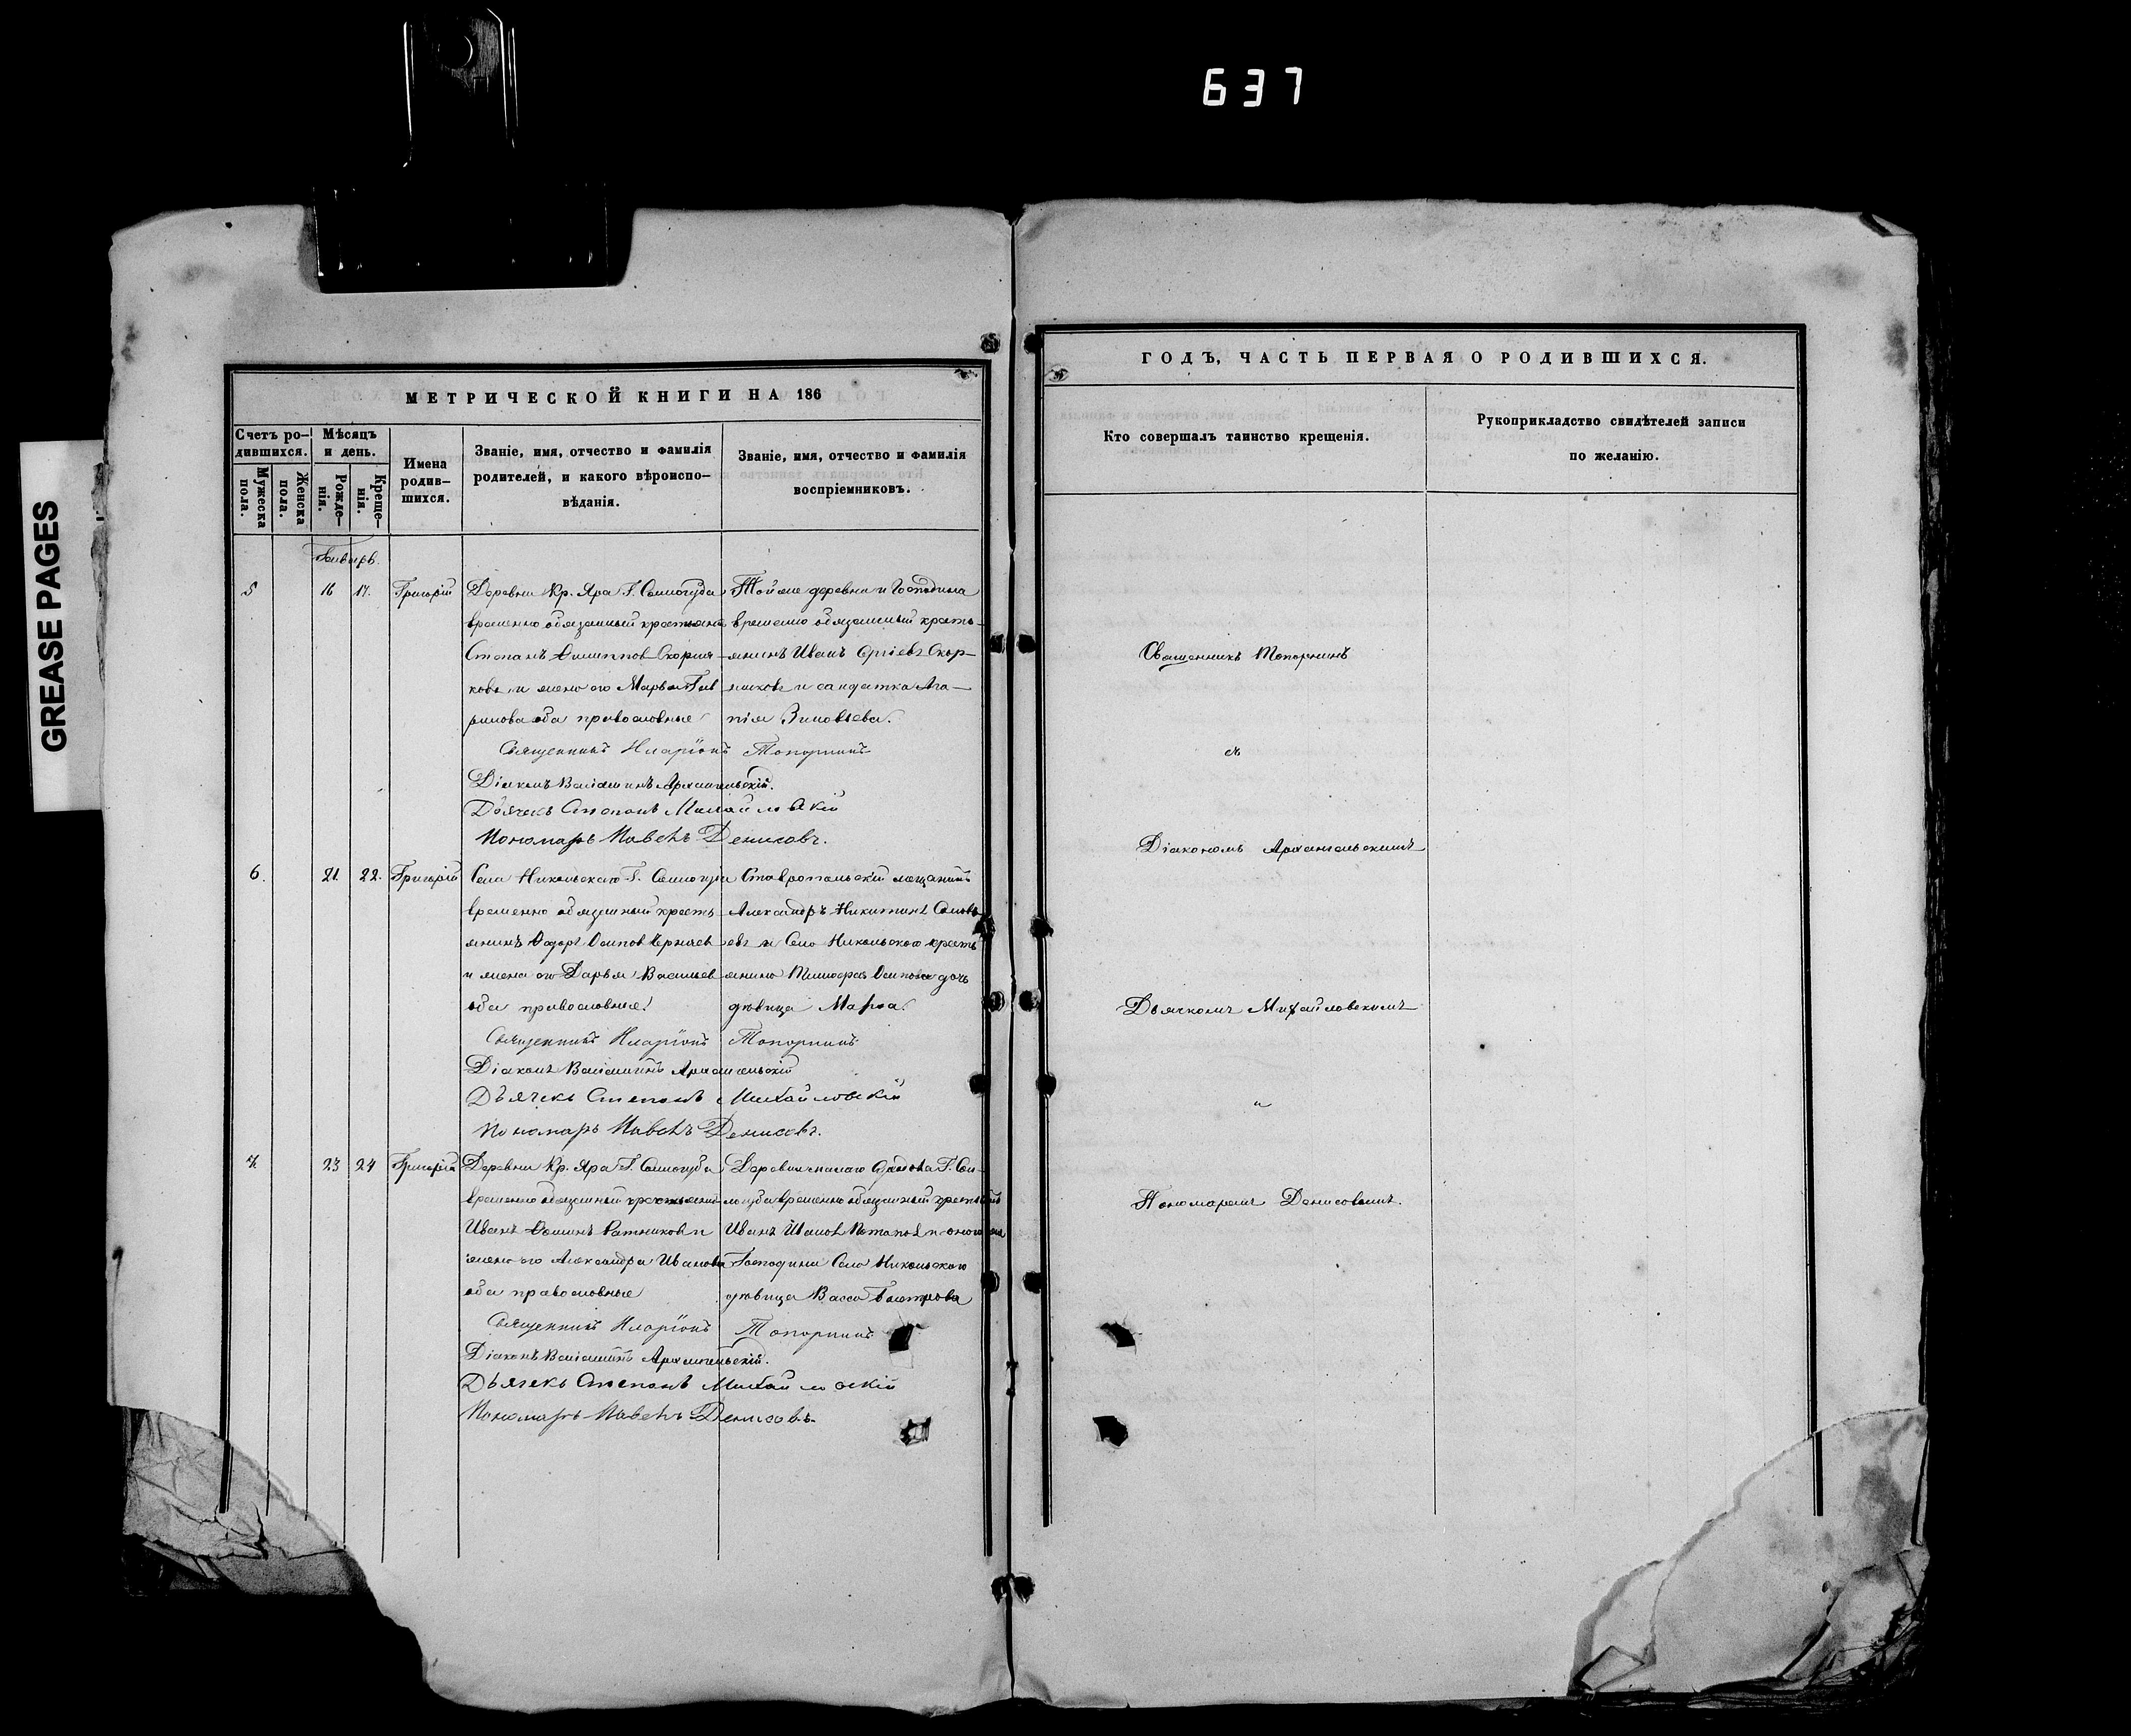 637
GREASE PAGES
МЕТРИЧЕСКОЙ КНИГИ НА 186
Счетъ ро-
дившихся.
Мужеска
пола.
Женска
пола.
Мѣсяцъ
и день.
Рожде-
нія.
Креще-
нія.
Имена
родив-
шихся.
Званіе, имя, отчество и фамилія
родителей, и какого вѣроиспо-
вѣданія.
Званіе, имя, отчество и фамилія
воспріемниковъ.
Январь.
5
16
17.
Григорій
Деревни Кр. Яра Г.
временно обязанный крестьянинъ
Степанъ Филиппов
и жена его Марья
оба православные
Той же деревни и Господина
временно обязанный кресть-
янинъ Иванъ Сергіевъ Скор-
и солдатка Ага-
пія Зиновьева.
Священникъ Иларіонъ Топорнинъ
Діаконъ Веніаминъ Архангельскій.
Дьячекъ Степанъ Михайловскій
Пономарь Павелъ Денисовъ.
6.
21
22.
Григорій
Села Никольскаго Г.
временно обязанный кресть-
янинъ Федоръ Осипов
и жена его Дарья Васильев
оба православные
Ставропольскій мещанинъ
Александръ Никитинъ Соловь
евъ и Села Никольскаго кресть
янина Тимофея Осипова дочь
дѣвица Марѳа.
Священникъ Иларіонъ Топорнинъ
Діаконъ Веніаминъ Архангельскій
Дьячекъ Степанъ Михайловскій
Пономарь Павелъ Денисовъ.
7.
23
24
Григорій
Деревни Кр. Яра Г.
временно обязанный крестьянинъ
Иванъ Ратниковъ и
жена его Александра Иванова
оба православные
временно обязанный
Иванъ Ивановъ Потаповъ и
Господина Села Никольскаго
дѣвица Васса
Священникъ Иларіонъ Топорнинъ
Діаконъ Веніаминъ Архангельскій.
Дьячекъ Степанъ Михайловскій
Пономарь Павелъ Денисовъ.
ГОДЪ, ЧАСТЬ ПЕРВАЯ О РОДИВШИХСЯ.
Кто совершалъ таинство крещенія.
Рукоприкладство свидѣтелей записи
по желанію.
Священникъ Топорнинъ
съ
Діакономъ Архангельскимъ
Дьячкомъ Михайловскимъ
и
Пономаремъ Денисовымъ.